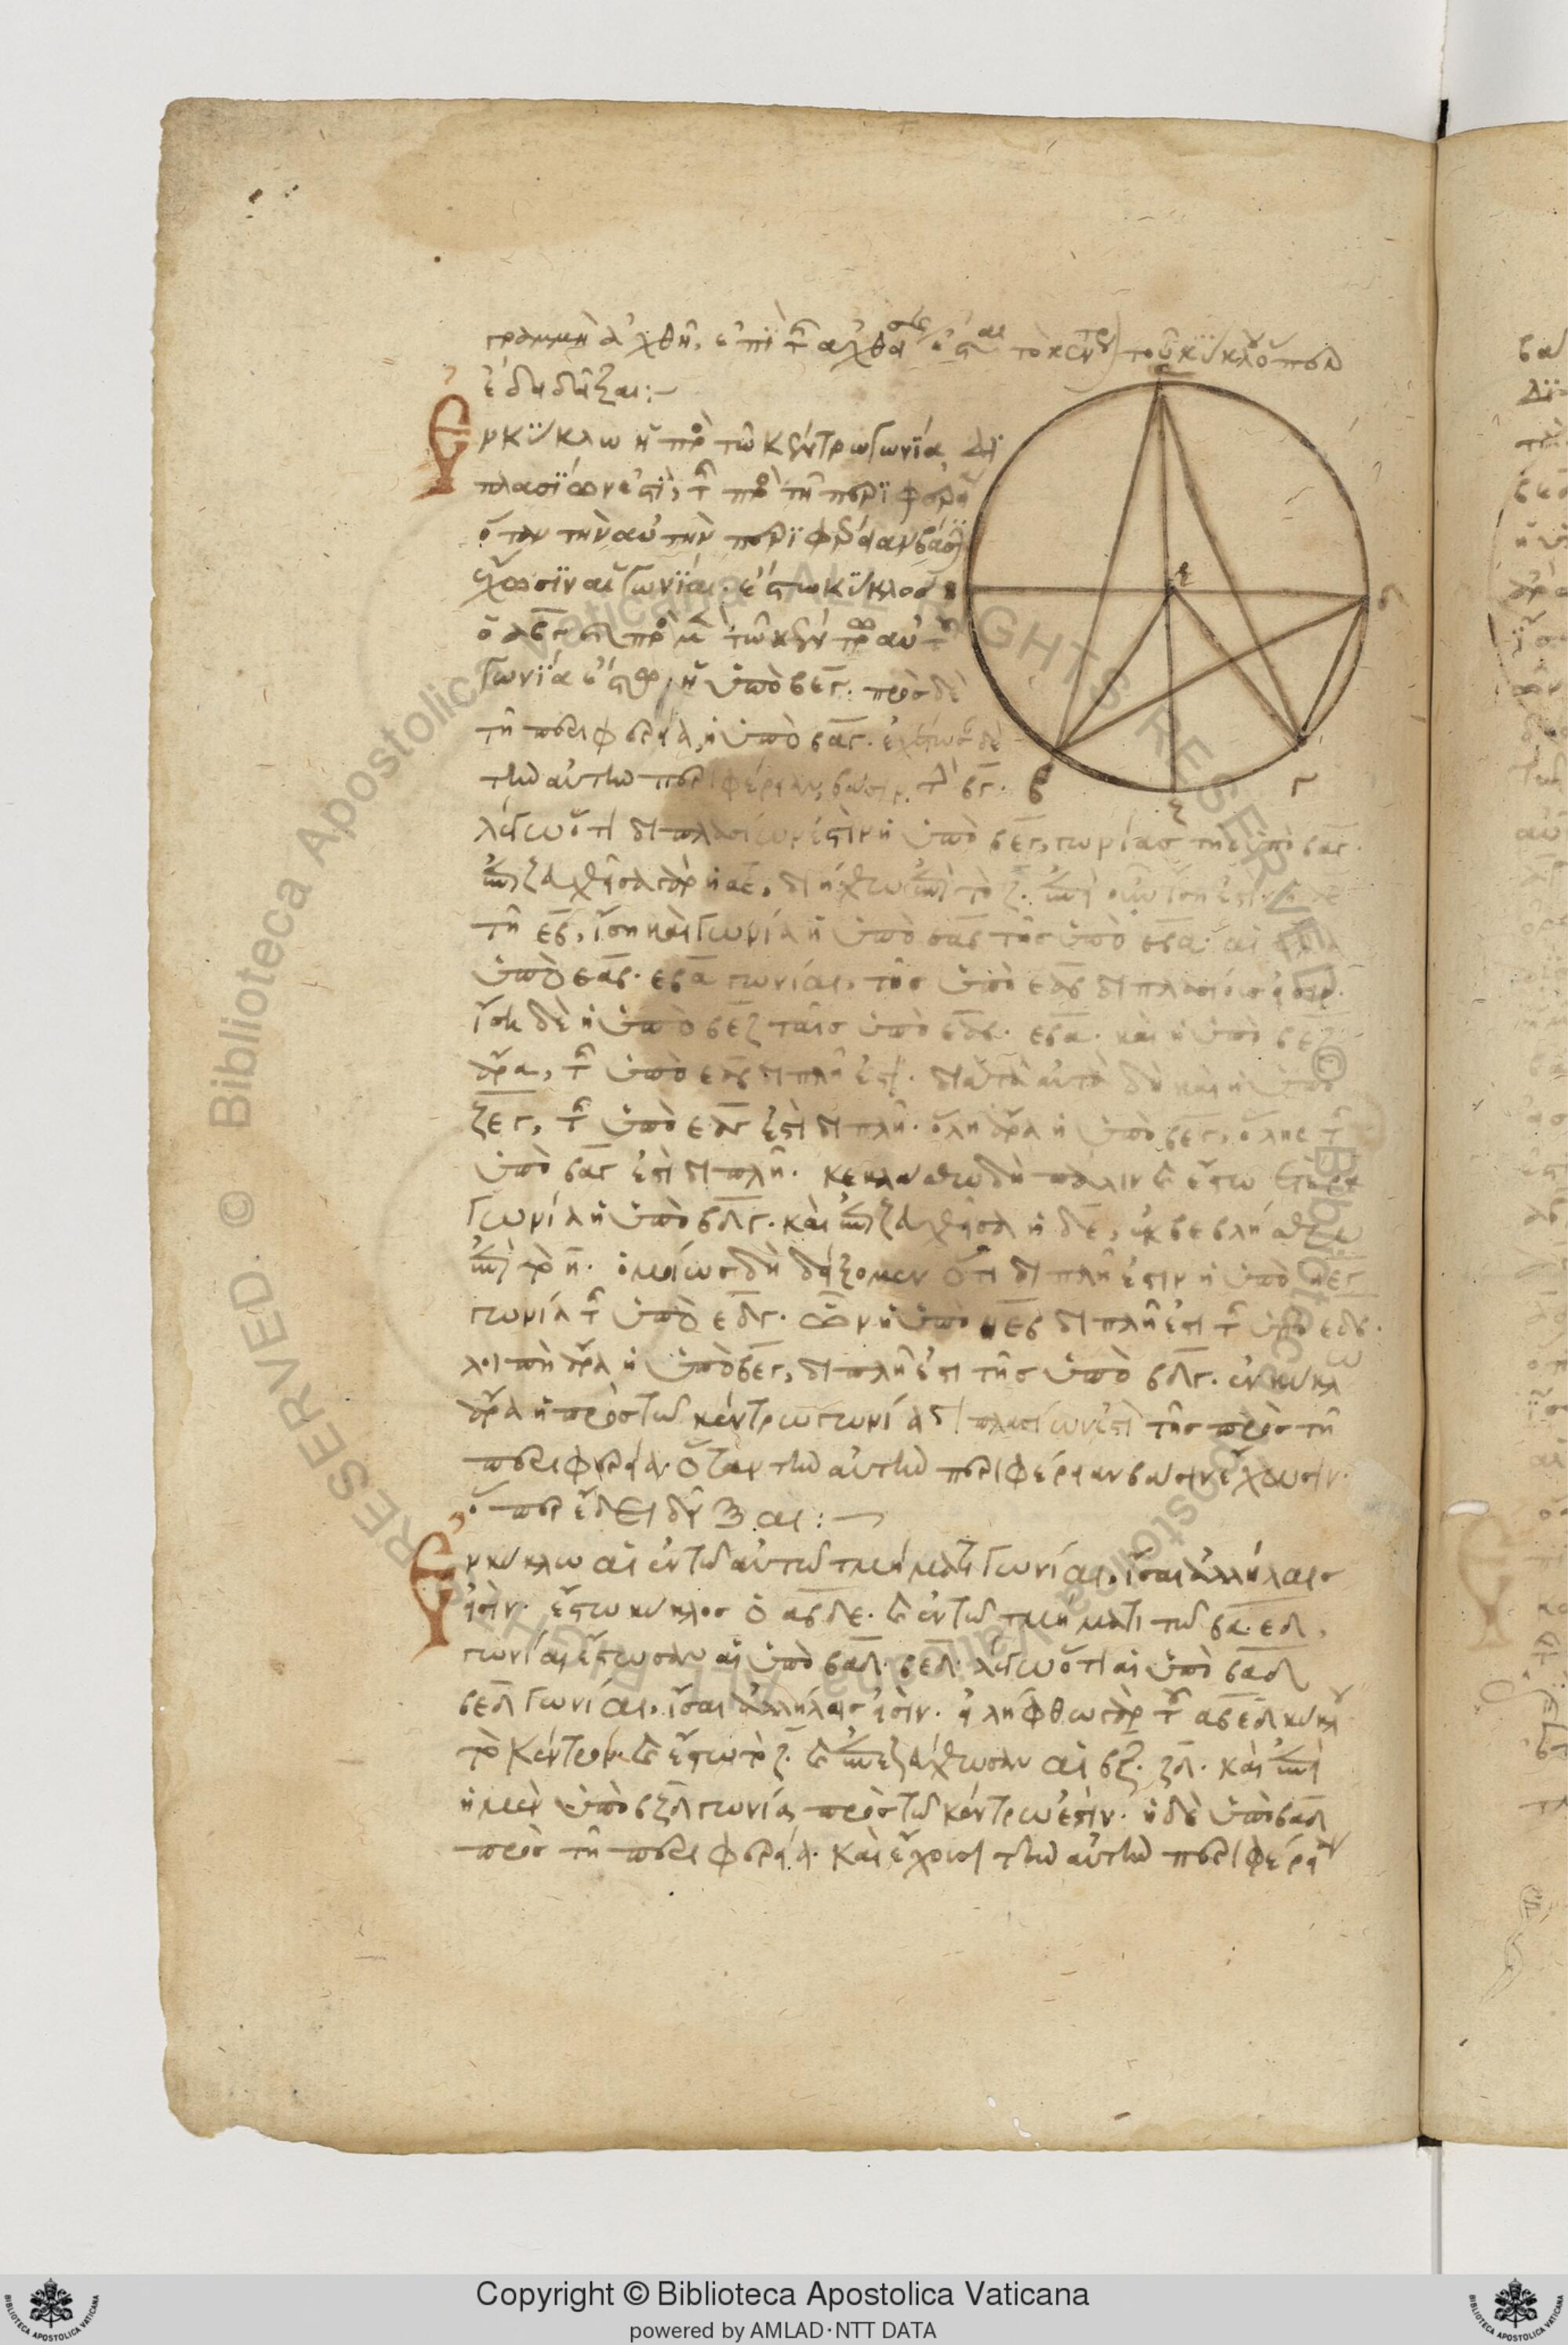 γραμμὴ ἀχθῆ, ἐπὶ τῆς ἀχθείσης ἔσται τὸ κέντρον τοῦ κύκλου ὅπερ
ἔδει δεῖξαι:—
Ἐν κύκλω ἡ πρὸς τῶ κέντρω γωνία, δι
πλασίων ἐστὶ, τῆς πρὸς τῆ περιφερεία
ὅταν τὴν αὐτὴν περιφέρειαν βάσιν
ἔχωσιν αἱ γωνίαι. ἔστω κύκλος
ὁ αβγ καὶ πρὸς μὲν τῶ κέντρω αὐτοῦ
γωνία ἔστω, ἡ ὑπὸ βεγ. πρὸς δὲ
τῆ περιφερεία, ἡ ὑπὸ βαγ. ἐχέτωσαν δὲ
τὴν αὐτὴν περιφέρειαν βάσιν. τὴν βγ. β
λέγω ὅτι διπλασίων ἐστὶν ἡ ὑπὸ βεγ, γωνίας τῆς ὑπὸ βαγ.
ἐπιζευχθεῖσα γὰρ ἡ αε, διήχθω ἐπὶ τὸ ζ. ἐπεὶ οὖν ἴση ἐστὶν ἡ εα
τῆ εβ, ἴση καὶ γωνία ἡ ὑπὸ εαβ τῆς ὑπὸ εβα. αἱ ἄρα
ὑπὸ εαβ. εβα γωνίαι, τῆς ὑπὸ εαβ διπλασίους εἰσίν.
ἴση δὲ ἡ ὑπὸ βεζ ταῖς ὑπὸ εαβ. εβα. καὶ ἡ ὑπὸ βεζ
ἄρα, τῆς ὑπὸ εαβ διπλῆ ἐστι. διὰ τὰ αὐτὰ δὴ καὶ ἡ ὑπὸ
ζεγ, τῆς ὑπὸ εαγ ἐστὶ διπλῆ. ὅλη ἄρα ἡ ὑπὸ βεγ, ὅλης τῆς
ὑπὸ βαγ ἐστὶ διπλῆ. κεκλάσθω δὴ πάλιν καὶ ἔστω ἑτέρα
γωνία ἡ ὑπὸ βδγ. καὶ ἐπιζευχθεῖσα ἡ δε, ἐκβεβλήσθω
ἐπὶ τὸ η. ὁμοίως δὴ δείξομεν ὅτι διπλῆ ἐστιν ἡ ὑπὸ ηεγ
γωνία τῆς ὑπὸ εδγ. ὧν ἡ ὑπὸ ηεβ διπλῆ ἐστι τῆς ὑπὸ εδβ.
λοιπὴ ἄρα ἡ ὑπὸ βεγ, διπλῆ ἐστι τῆς ὑπὸ βδγ. ἐν κύκλω
ἄρα ἡ πρὸς τῶ κέντρω γωνία διπλασίων ἐστὶ τῆς πρὸς τῆ
περιφερεία. ὅταν τὴν αὐτὴν περιφέρειαν βάσιν ἔχωσιν.
ὅπερ ἔδει δεῖξαι:—
Ἐν κύκλω αἱ ἐν τῶ αὐτῶ τμήματι γωνίαι, ἴσαι ἀλλήλαις
εἰσίν. ἔστω κύκλος ὁ αβδε. καὶ ἐν τῶ τμήματι τῶ βα. εδ,
γωνίαι ἔστωσαν αἱ ὑπὸ βαδ. βεδ. λέγω ὅτι αἱ ὑπὸ βαδ
βεδ γωνίαι, ἴσαι ἀλλήλαις εἰσίν. εἰλήφθω γὰρ τοῦ αβεδ κύκλου
τὸ κέντρον. καὶ ἔστω τὸ ζ. καὶ ἐπεζεύχθωσαν αἱ βζ. ζδ. καὶ ἐπεὶ
ἡ μὲν ὑπὸ βζδ γωνία πρὸς τῶ κέντρω ἐστὶν. ἡ δὲ ὑπὸ βαδ
πρὸς τῆ περιφερεία. καὶ ἔχουσι τὴν αὐτὴν περιφέρειαν
Copyright © Biblioteca Apostolica Vaticana
powered by AMLAD·NTT DATA